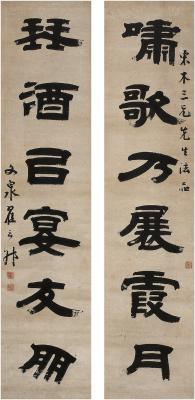 東木三兄先生法正
嘯歌乃展霞月
琴酒㠯宴友朋
文泉翟云升